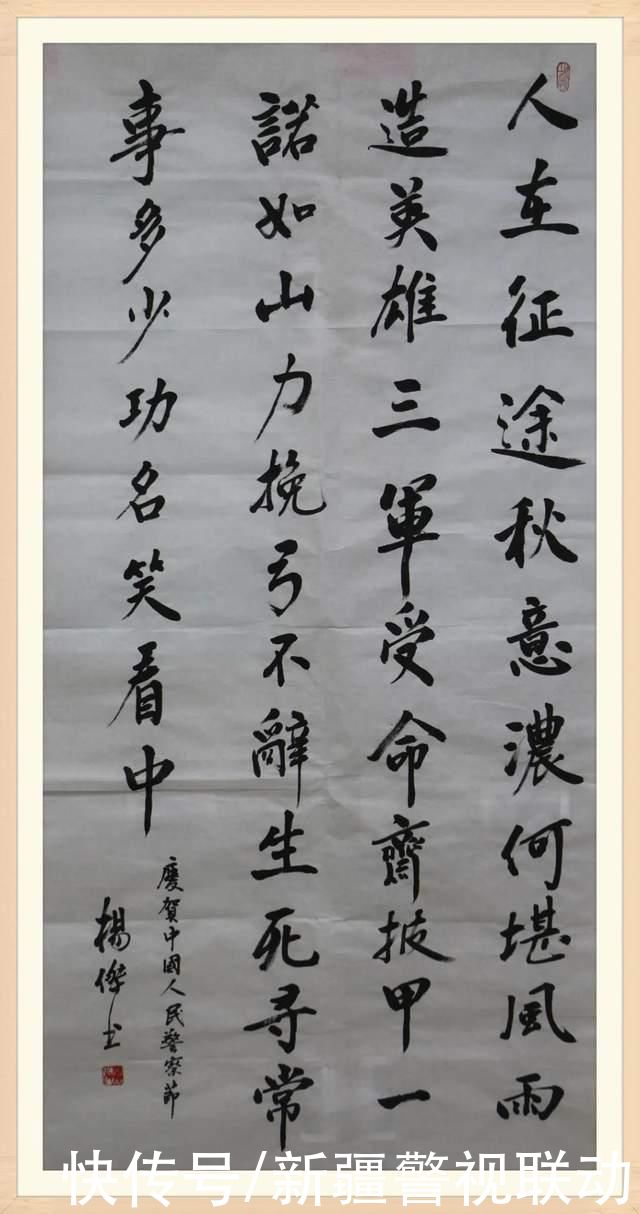 人在征途秋意濃何堪風雨
造英雄三軍受命齊披甲一
諾如山力挽弓不辭生死尋常
事多少功名笑看中
慶賀中國人民警察節
楊傑书
快传号/新疆警视联动